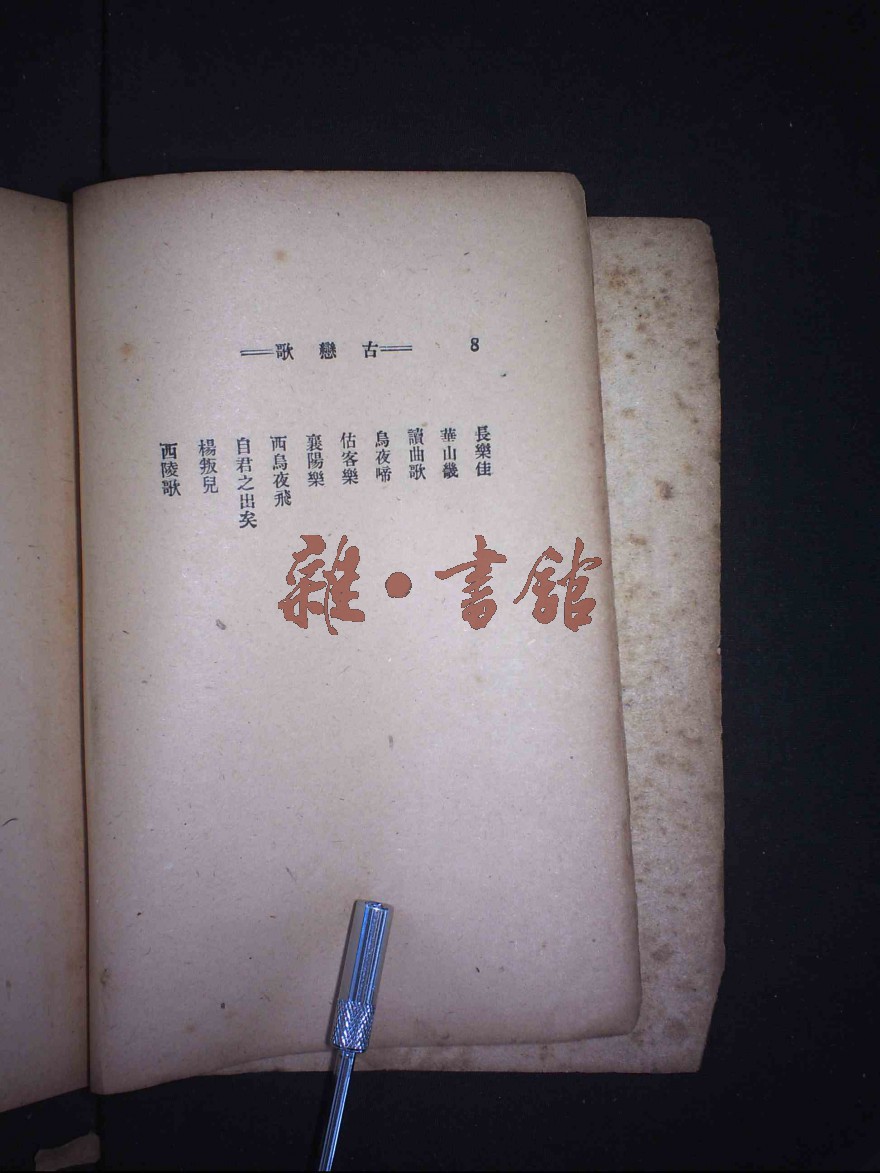 8 ══古戀歌══
長樂佳
華山畿
讀曲歌
烏夜啼
估客樂
襄陽樂
西烏夜飛
自君之出矣
楊叛兒
西陵歌
雜·書館